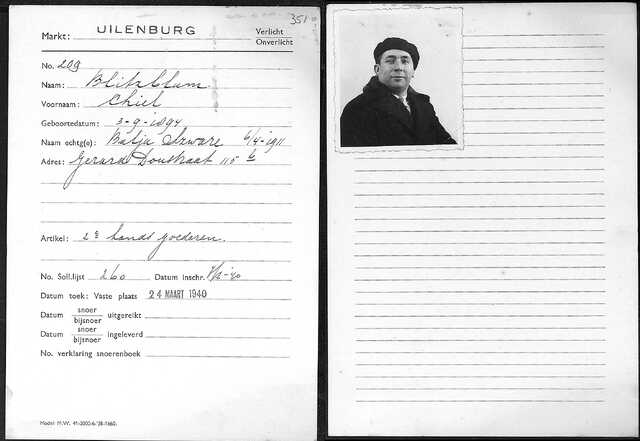 351
Markt: UILENBURG Verlicht
Onverlicht
No. 209
Naam: Blitzblum
Voornaam: Chiel
Geboortedatum: 3-9-1894
Naam echtg(e): Zware 6/4-1911
Adres: Gerard Doustraat 115
Artikel: 2e hands goederen.
No. Soll.lijst 260 Datum inschr.
Datum toek: Vaste plaats 24 MAART 1940
Datum snoer
bijsnoer uitgereikt
Datum snoer
bijsnoer ingeleverd
No. verklaring snoerenboek
Model M.W. 41-3000-6-'38-1660.